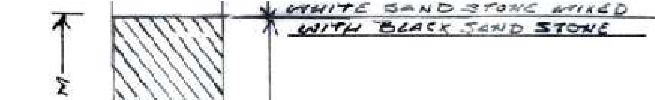 WHITE SAND STONE MIXED
WITH BLACK SAND STONE